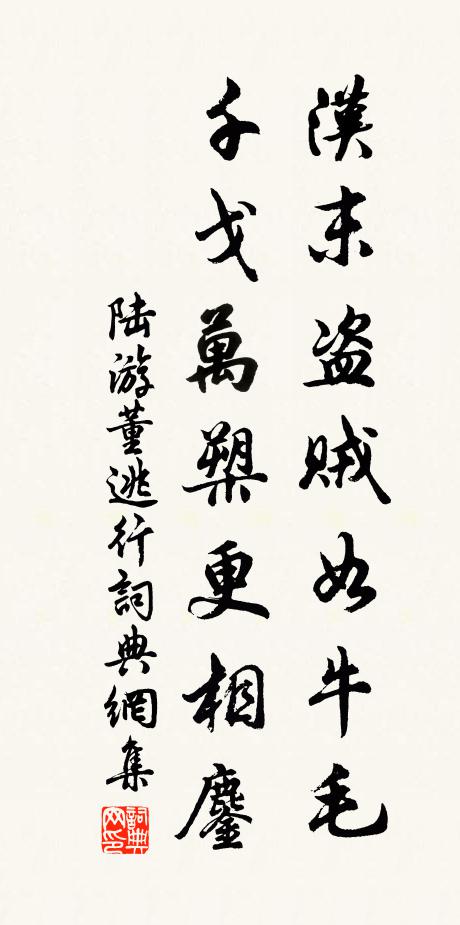 漢末盗賊如牛毛
千戈萬槊更相鏖
陆游董逃行詞典網集
詞典网印